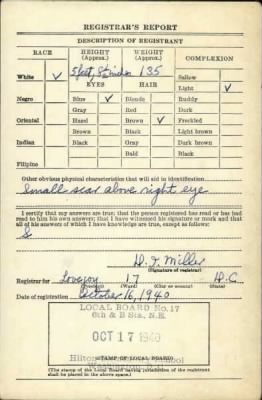 REGISTRAR'S REPORT
DESCRIPTION OF REGISTRANT
RACE HEIGHT (Approx.) WEIGHT (Approx.) COMPLEXION
White ✓ 5 feet, 8 inches 135 Sallow
EYES HAIR Light ✓
Negro Blue ✓ Blonde Ruddy
Gray Red Dark
Oriental Hazel Brown ✓ Freckled
Brown Black Light brown
Indian Black Gray Dark brown
Bald Black
Filipino
Other obvious physical characteristics that will aid in identification
Small scar above right eye
I certify that my answers are true; that the person registered has read or has had
read to him his own answers; that I have witnessed his signature or mark and that
all of his answers of which I have knowledge are true, except as follows:
D. F. Miller
(Signature of registrar)
Registrar for Lovejoy 17 D.C.
(Precinct) (Ward) (City or county) (State)
Date of registration October 16, 1940
LOCAL BOARD No. 17
6th & B Sts., N.E.
OCT 17 1940
Hilton School
Washington, D.C.
(STAMP OF LOCAL BOARD)
(The stamp of the Local Board having jurisdiction of the registrant
shall be placed in the above space.)